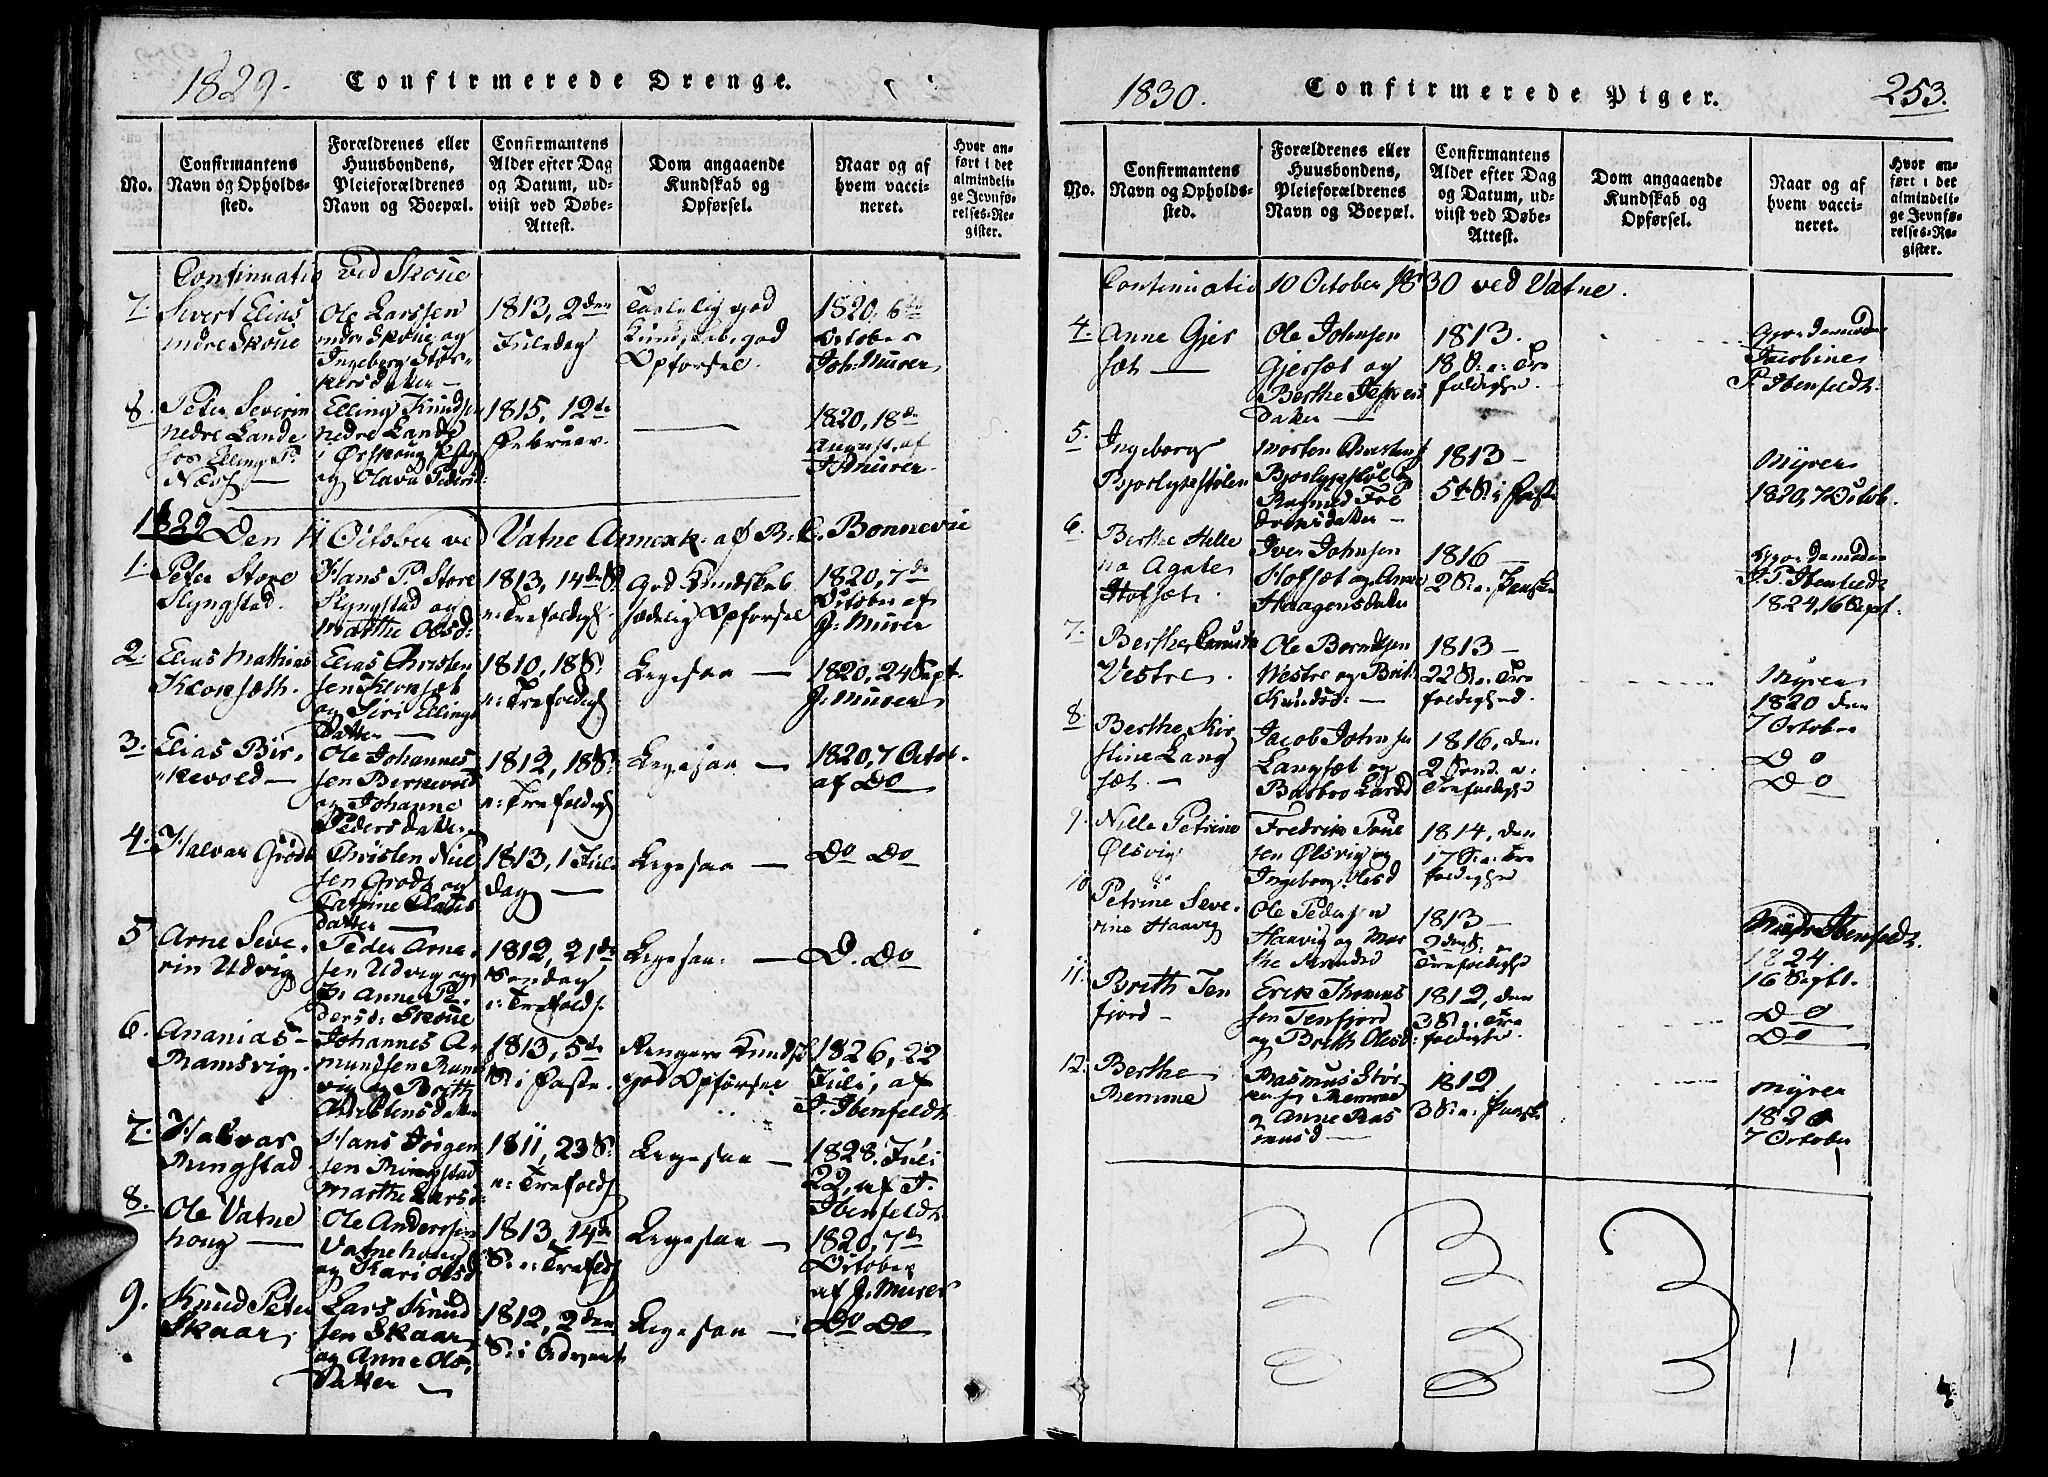 1829.
Confirmerede Drenge.
No.
Confirmantens
Navn og Opholds-
sted.
Forældrenes eller
Huusbondens,
Pleieforældrenes
Navn og Boepæl.
Confirmantens
Alder efter Dag
og Datum, ud-
viist ved Døbe-
Attest.
Dom angaaende
Kundskab og
Opførsel.
Naar og af
hvem vacci-
neret.
Hvor an-
ført i det
almindeli-
ge Jevnfø-
relses-Re-
gister.
Continuatio ved Skoue
7.
Sivert Elias
indre Skoue
Ole Larssen
indre Skoue og
Ingeberg Stor-
kersdatter
1813, 2den
Juledag
Taalelig god
Kundskab, god
Opførsel.
1820, 6te
October
Joh: Murer
8.
Peter Severin
nedre Lande
hos Elling P.
Næss
Elling Knudsen
nedre Lande
i Ørskoug
og Olava Peders
1815, 12te
Februar
1820, 18de
August, af
J Murer
1829 Den 11 October ved Vatne Annex af B. C. Bonnevie
1.
Peter Store
Slyngstad.
Hans P. Store
Slyngstad og
Marthe Olsd:
1813, 14de S.
e: Trefoldigh.
God Kundskab
sædelig Opførsel
1820, 7de
October af
J. Murer
2.
Elias Mathias
Kiersæth.
Elias Christen
sen Kiersæt
og Siri Ellings
Datter
1810, 18 S.
e: Trefoldigh
Ligesaa
1820, 24 Sept.
J. Murer
3.
Elias Bir-
kevold
Ole Johannes
sen Berkevold
og Johanne
Pedersdatter
1812, 18 S.
e: Trefoldigh
Ligesaa
1820, 7 Octob.
af Do
4.
Halvar Grødt
Christen Niel
sen Grødt og
Datter
1813, 1 Jule
dag
Ligesaa
Do Do
5
Arne Seve-
rin Udvig
Peder Arne
sen Udvig og
Anne Pe
dersd: Skoue
1812, 21de
Søndag
e: Trefolds.
Ligesaa.
D. Do
6.
Ananias
Ramsvig.
Johannes A-
mundsen Rams
vig og Brith
Christensdatter
1813, 5te
S. i Faste.
Ringere Kundsk
god Opførsel
1826, 22
Juli, af
J. Ibenfeldt
7.
Halvar
Ringstad
Hans Jørgen
sen Ringstad
Marthe Larsd:
1811, 23 S.
e: Trefolds
Ligesaa
1828. Juli
22, af J.
Ibenfeldt
8.
Ole Vatne
houg
Ole Anderssen
Vatnehoug
og Kari Olsd
1813, 14de
S. e: Trefolds
Ligesaa
1820, 7de
October
af J. Murer
9.
Knud Peter
Skaar,
Lars Knud
sen Skaar
og Anne Ols.
Datter
1812, 2den
S: i Advent
Ligesaa
Do Do
1830.
Confirmerede Piger.
253.
No.
Confirmantens
Navn og Opholds-
sted.
Forældrenes eller
Huusbondens,
Pleieforældrenes
Navn og Boepæl.
Confirmantens
Alder efter Dag
og Datum, ud-
viist ved Døbe-
Attest.
Dom angaaende
Kundskab og
Opførsel.
Naar og af
hvem vacci-
neret.
Hvor an-
ført i det
almindeli-
ge Jevnfø-
relses-Re-
gister.
Continuatio 10 October 1830 ved Vatne.
4.
Anne Gjer
sæt
Ole Johnsen
Gjersæt og
Berthe
Datter
1813.
18 S. e: Tre
foldighd.
Gjordemoder
Jacobine
P. Ibenfeldt.
5.
Ingeborg
Bjorlykestølen
Morten Christens
Bjorlykestøl og
Ragnild Fre
driksdatter
1813
5te S. i Faste
Myren
1820, 7 Octob.
6.
Berthe Hille
na Agate
Hofsæt.
Iver Johnsen
Hofsæt og Anne
Haagensdatter
1816
2 S. e. Paaske
Gjordemoder
J. P. Ibenfeldt
1824, 16 Sept.
7.
Berthe
Vestre.
Ole Berndtsen
Westre og Brit
Knudsd:
1813
22 S. e. Tre
foldighed.
Myren
1820 den
7 October
8.
Berthe Kir
stine Lang
sæt.
Jacob Johnsen
Langsæt og
Barbro Larsd
1816, den
2 Sønd. e.
Trefoldighd
Do
Do
9.
Nille Petrine
Ølsvig
Fredrik Poul
sen Ølsvig og
Ingeborg Olesd
1814, den
17 S. e: Tre
foldighed
10
Petrine Seve-
rine Haavig
Ole Pedersen
Haavig og Mar
the
1813
2den S: e
Trefoldighd
Ibenfeldt.
1824.
16 Sept.
11.
Brith Ten
fjord
Erik Thomas
sen Tenfjord
og Brith Olesd
1812, den
3 S. e. Tre
foldighed
Do
Do
12.
Berthe
Remme
Rasmus Stor
kersen Remme
og Anne Ras
musd
1812
3 S. e. Paaske
Myren
1820
7 October